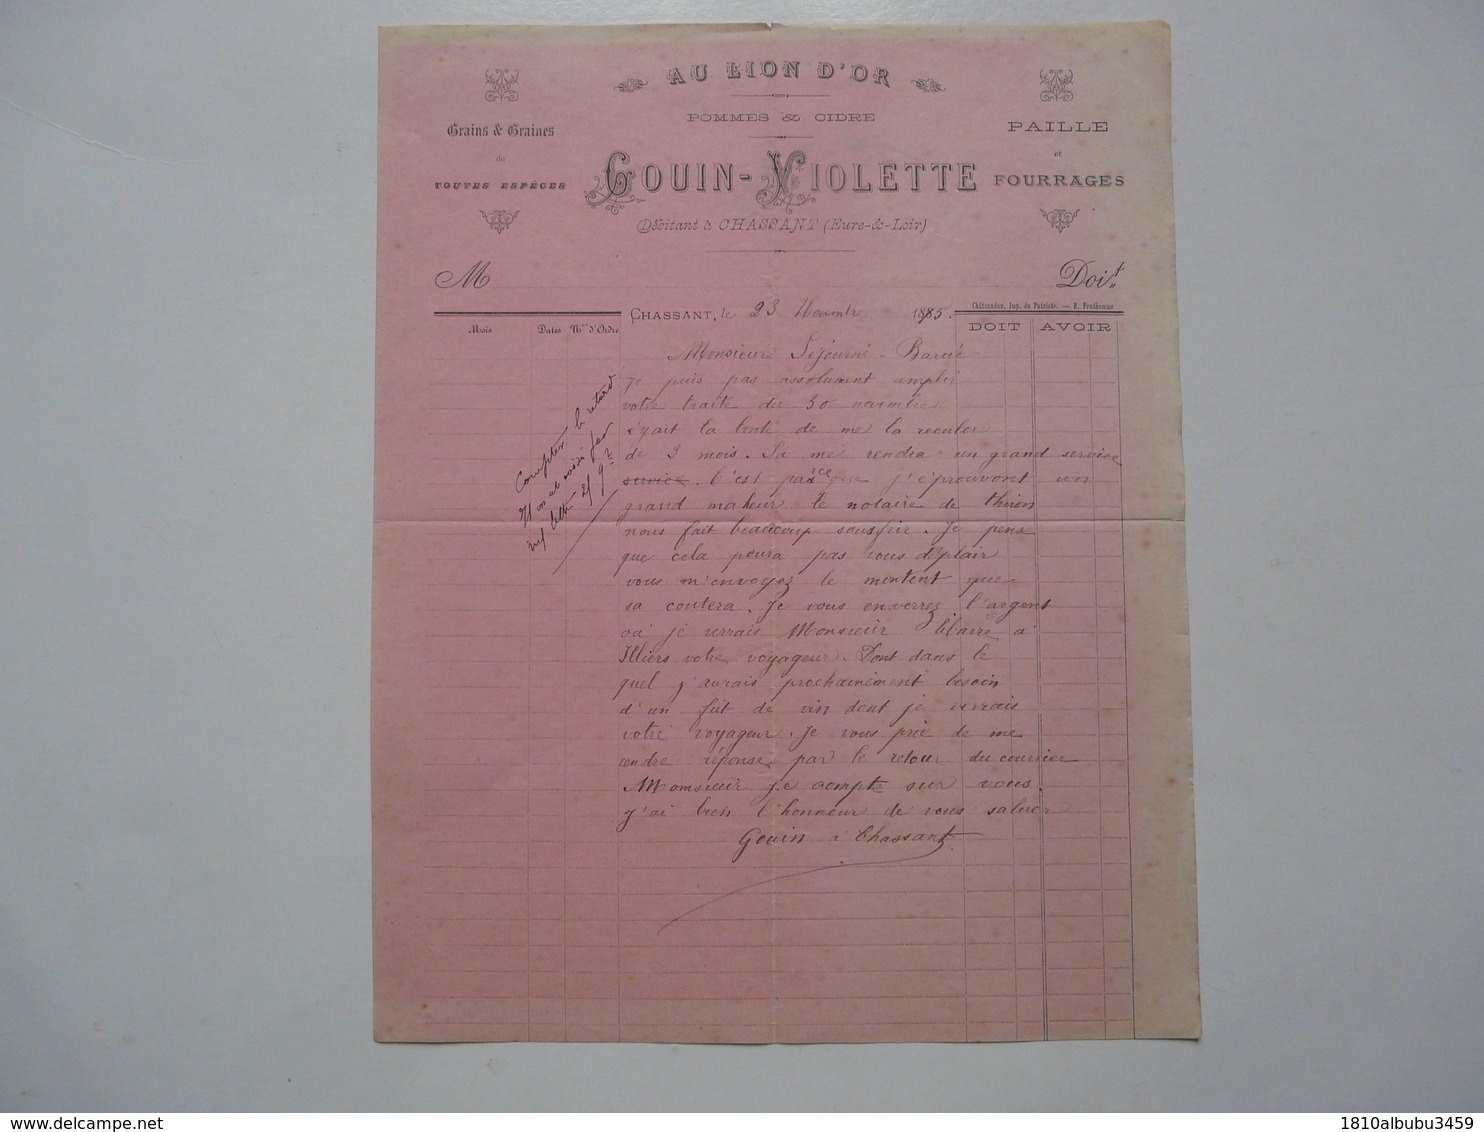 AU LION D'OR
POMMES & CIDRE
Grains & Graines
de
TOUTES ESPÈCES
GOUIN-VIOLETTE
PAILLE
et
FOURRAGES
Débitant à CHASSANT (Eure-&-Loir)
M
Doit
Châteaudun, Imp. du Patriote. — H. Prudhomme
CHASSANT, le 23 Novembre 1885.
Mois Dates Nos d'Ordre
DOIT AVOIR
Monsieur Séjourné-
Je puis pas assolument remplir
votre traite du 30 novembre
éyait la bonté de me la reculer
de 3 mois. Sa me rendra un grand service
service. C'est parceque j'éprouvont un
grand maheur le notaire de thiron
nous fait beaucoup souffrir. Je pense
que cela poura pas vous déplair
vous m'envoyez le montent que
sa coutera. Je vous enverrez l'argent
ou je verrais Monsieur à
Illiers votre voyageur. Dont dans le
quel j'aurais prochainement besoin
d'un fût de vin dont je verrais
votre voyageur. Je vous prie de me
rendre réponse par le retour du courrier
Momsieur je compte sur vous.
j'ai bien l'honneur de vous saluer
Gouin à Chassant
Compter le retard
1810albubu3459
www.delcampe.net